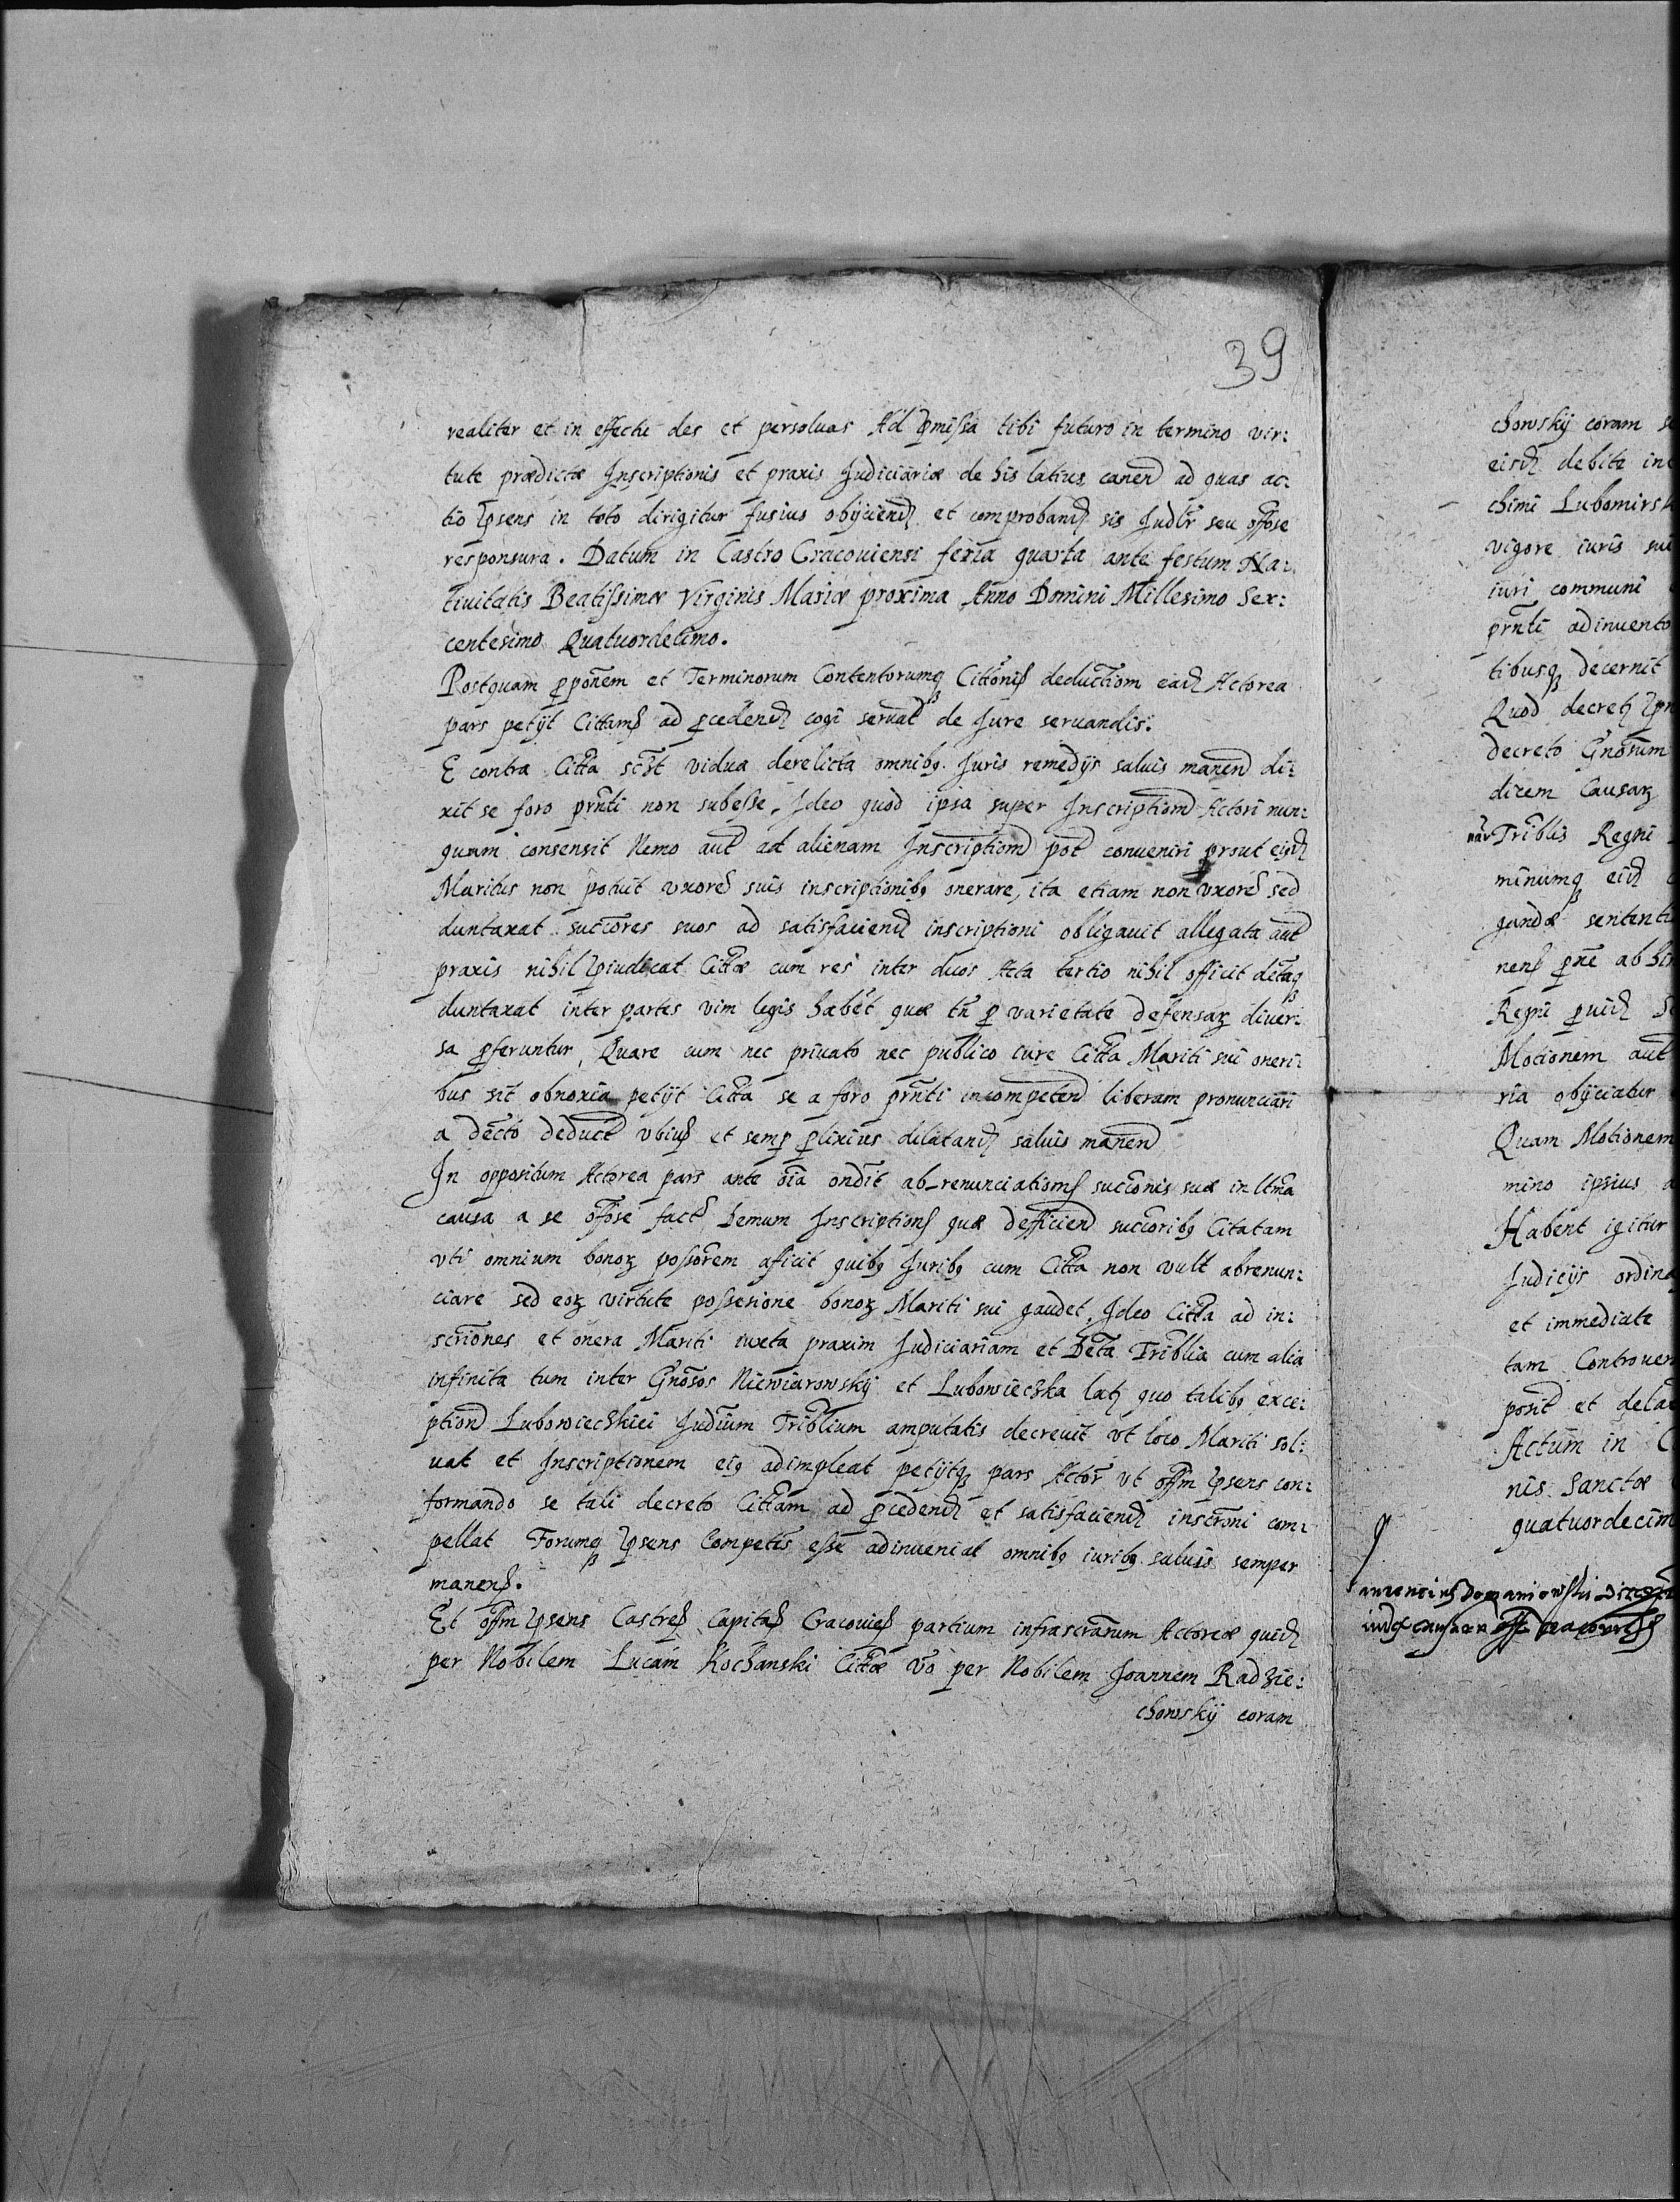 39
realiter et in effectu des et persoluas Ad pmissa tibi futuro in termino vir:
tute prædictæ Inscriptionis et praxis Judiciariæ de his latius canen ad quas ac:
tio psens in toto dirigitur fusius obijciend et comproband sis Judlr seu offose
responsura. Datum in Castro Cracouiensi feria quarta ante festum Na:
tiuitatis Beatissimæ Virginis Mariæ proxima Anno Domini Millesimo Sex:
centesimo Quatuordecimo.
Postquam pponem et Terminorum Contentorumq Cittonis deductiom ead Actorea
pars petijt Cittam ad pcedend cogi seruat de Jure seruandis.
E contra Citta scst vidua derelicta omnibq Juris remedijs saluis manen di:
xit se foro prnti non subesse, Ideo quod ipsa super Inscriptiom Actori nun:
quam consensit Nemo aut ad alienam Inscriptiom pot conueniri prout eisd
Maritus non potuit vxore suis inscriptionibq onerare, ita etiam non vxore sed
duntaxat succores suos ad satisfaciend inscriptioni obligauit allegata aut
praxis nihil piudicat Cittæ cum res inter duos Acta tertio nihil officit detaq
duntaxat inter partes vim legis habet quæ tn p varietate defensaz diuer:
sa pferuntur, Quare cum nec priuato nec publico iure Citta Mariti sui oneri:
bus sit obnoxia petijt Citta se a foro prnti incompeten liberam pronunciari
a decto deduct vbius et semp plixius dilatand saluis manen
In oppositum Actorea pars ante oia ondit ab-renunciatiom succonis suæ in Utma
causa a se offose fact Demum Inscription quæ defficien succoribq Citatam
vti omnium bonoz possorem aficit quibq Juribq cum Citta non vult abrenun:
ciare sed eoz virtute possesione bonoz Mariti sui gaudet, Ideo Citta ad in:
scriones et onera Mariti iuxta praxim Judiciariam et Deta Triblia cum alia
infinita tum inter Gnosos Niewiarowskij et Lubowiecska lat quo talibq exce:
ption Lubowiecskiei Judium Triblium amputatis decreuit vt loco Mariti sol:
uat et Inscriptionem eiq adimpleat petijtq pars Actor vt offm psens con:
formando se tali decreto Cittam ad pcedend et satisfaciend inscroni com:
pellat Forumq psens Competes esse adinueniat omnibq iuribq saluis semper
manen.
Et offm psens Castren Capitan Cracouien partium infrascrarum Actoreæ quid
per Nobilem Lucam Kochanski Cittæ vo per Nobilem Joannem Radzie:
chowskij coram
chowskij coram
eisd debite
chimi Lubomirs
vigore iuris sui
iuri communi
prnti adinuento
tibusq decernit
Quod decret
decreto Gnosum
direm Causaz
Triblis Regni
minumq eid
gandæ sententi
nens pne ab hi
Regni puid
Motionem aut
ria obijciatur
Quam Motionem
mino ipsius
Habent igitur
Judicijs ordin
et immediate
tam Controuer
posit et dela
Actum in C
nis Sanctæ
quatuordecim